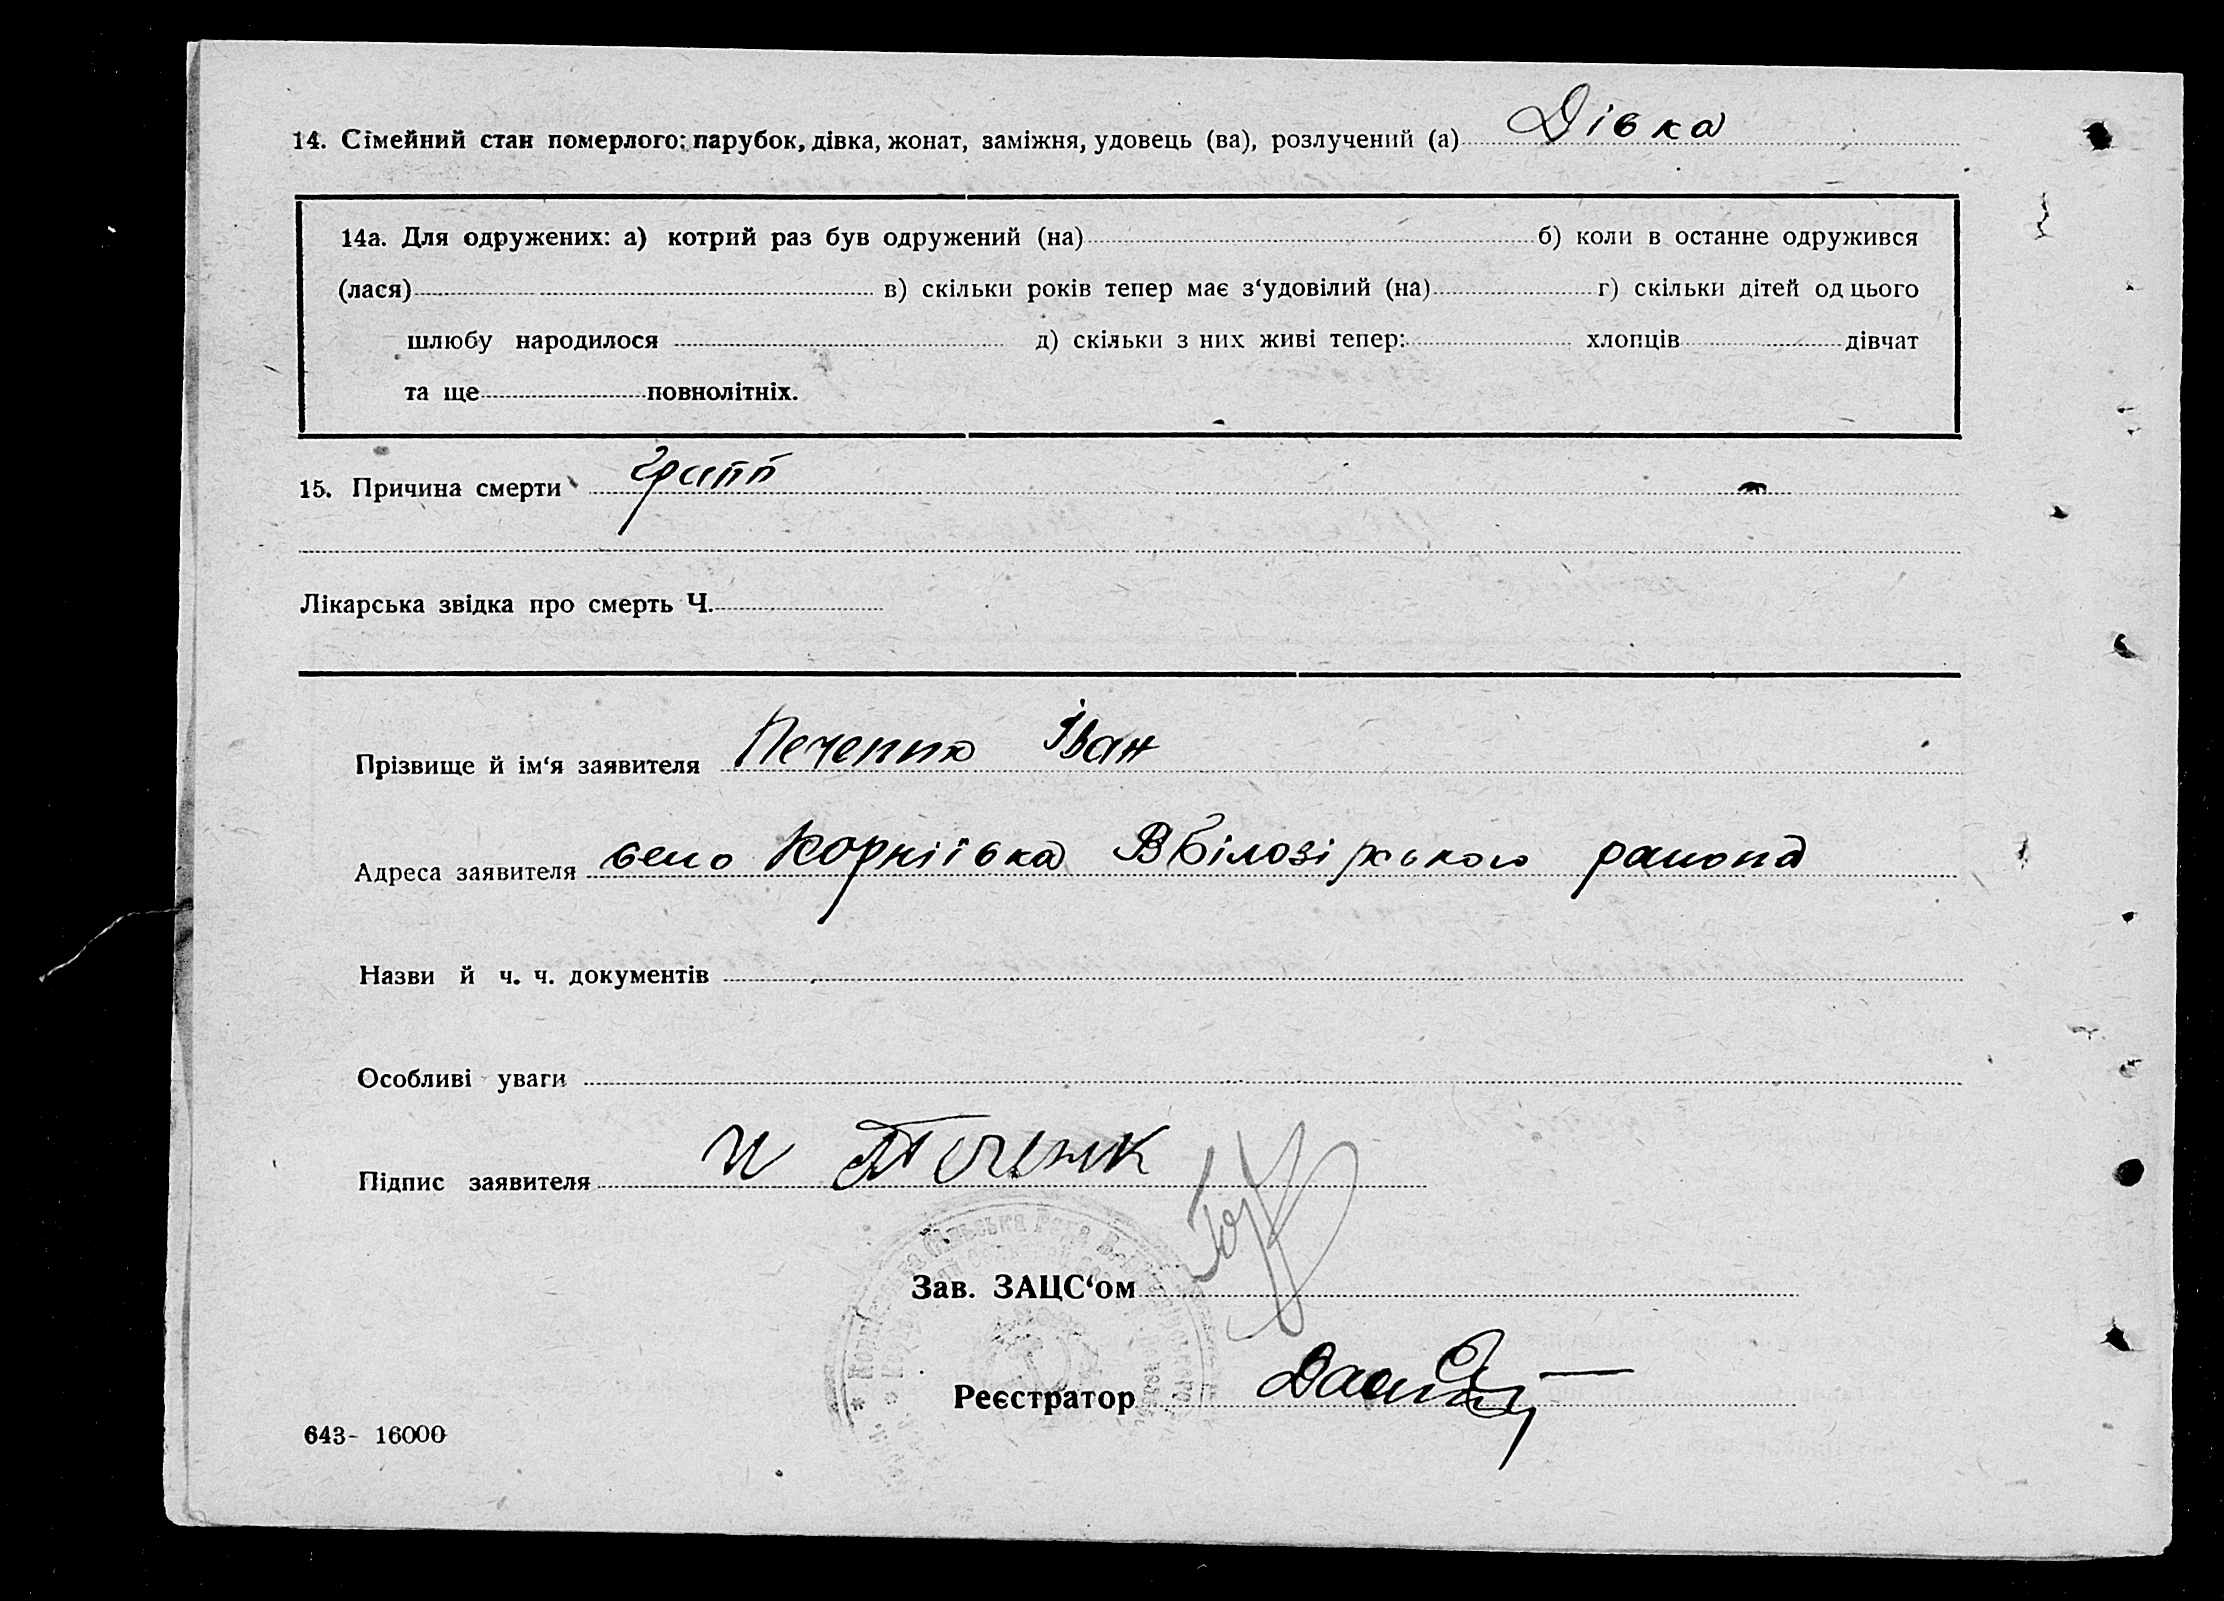 14. Сімейний стан померлого: парубок, дівка, жонат, заміжня, удовець (ва), розлучений (а) Дівка
14а. Для одружених: а) котрий раз був одружений (на) б) коли в останне одружився
(лася) в) скільки років тепер має з‘удовілий (на) г) скільки дітей од цього
шлюбу народилося д) скільки з них живі тепер: хлопців дівчат
та ще повнолітніх.
15. Причина смерти грипп
Лікарська звідка про смерть Ч.
Прізвище й ім‘я заявителя Іван
Адреса заявителя село Корніївка Вбілозірського района
Назви й ч. ч. документів
Особливі уваги
Підпис заявителя
Зав. ЗАЦС‘ом
Реєстратор
643- 16000